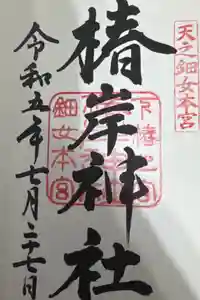 天之鈿女本宮
椿岸神社
鈿女本宮
令和五年七月二十七日